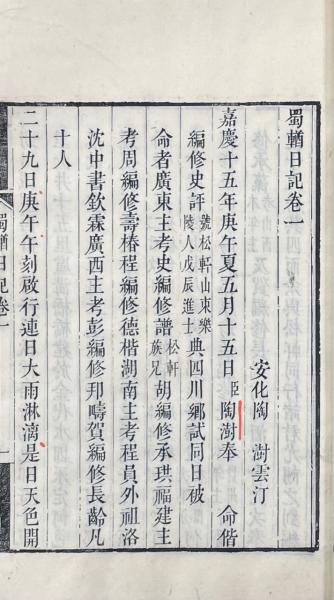 蜀輶日記卷一
安化陶 澍雲汀
嘉慶十五年庚午夏五月十五日臣陶澍奉 命偕
編修史評號松軒山東樂陵人戊辰進士典四川鄉試同日被
命者廣東主考史編修譜松軒族兄胡編修承珙福建主
考周編修壽椿程編修德楷湖南主考程員外祖洛
沈中書欽霖廣西主考彭編修邦疇賀編修長齡凡
十人
二十九日庚午午刻啟行連日大雨淋漓是日天色開
蜀輶日記卷一